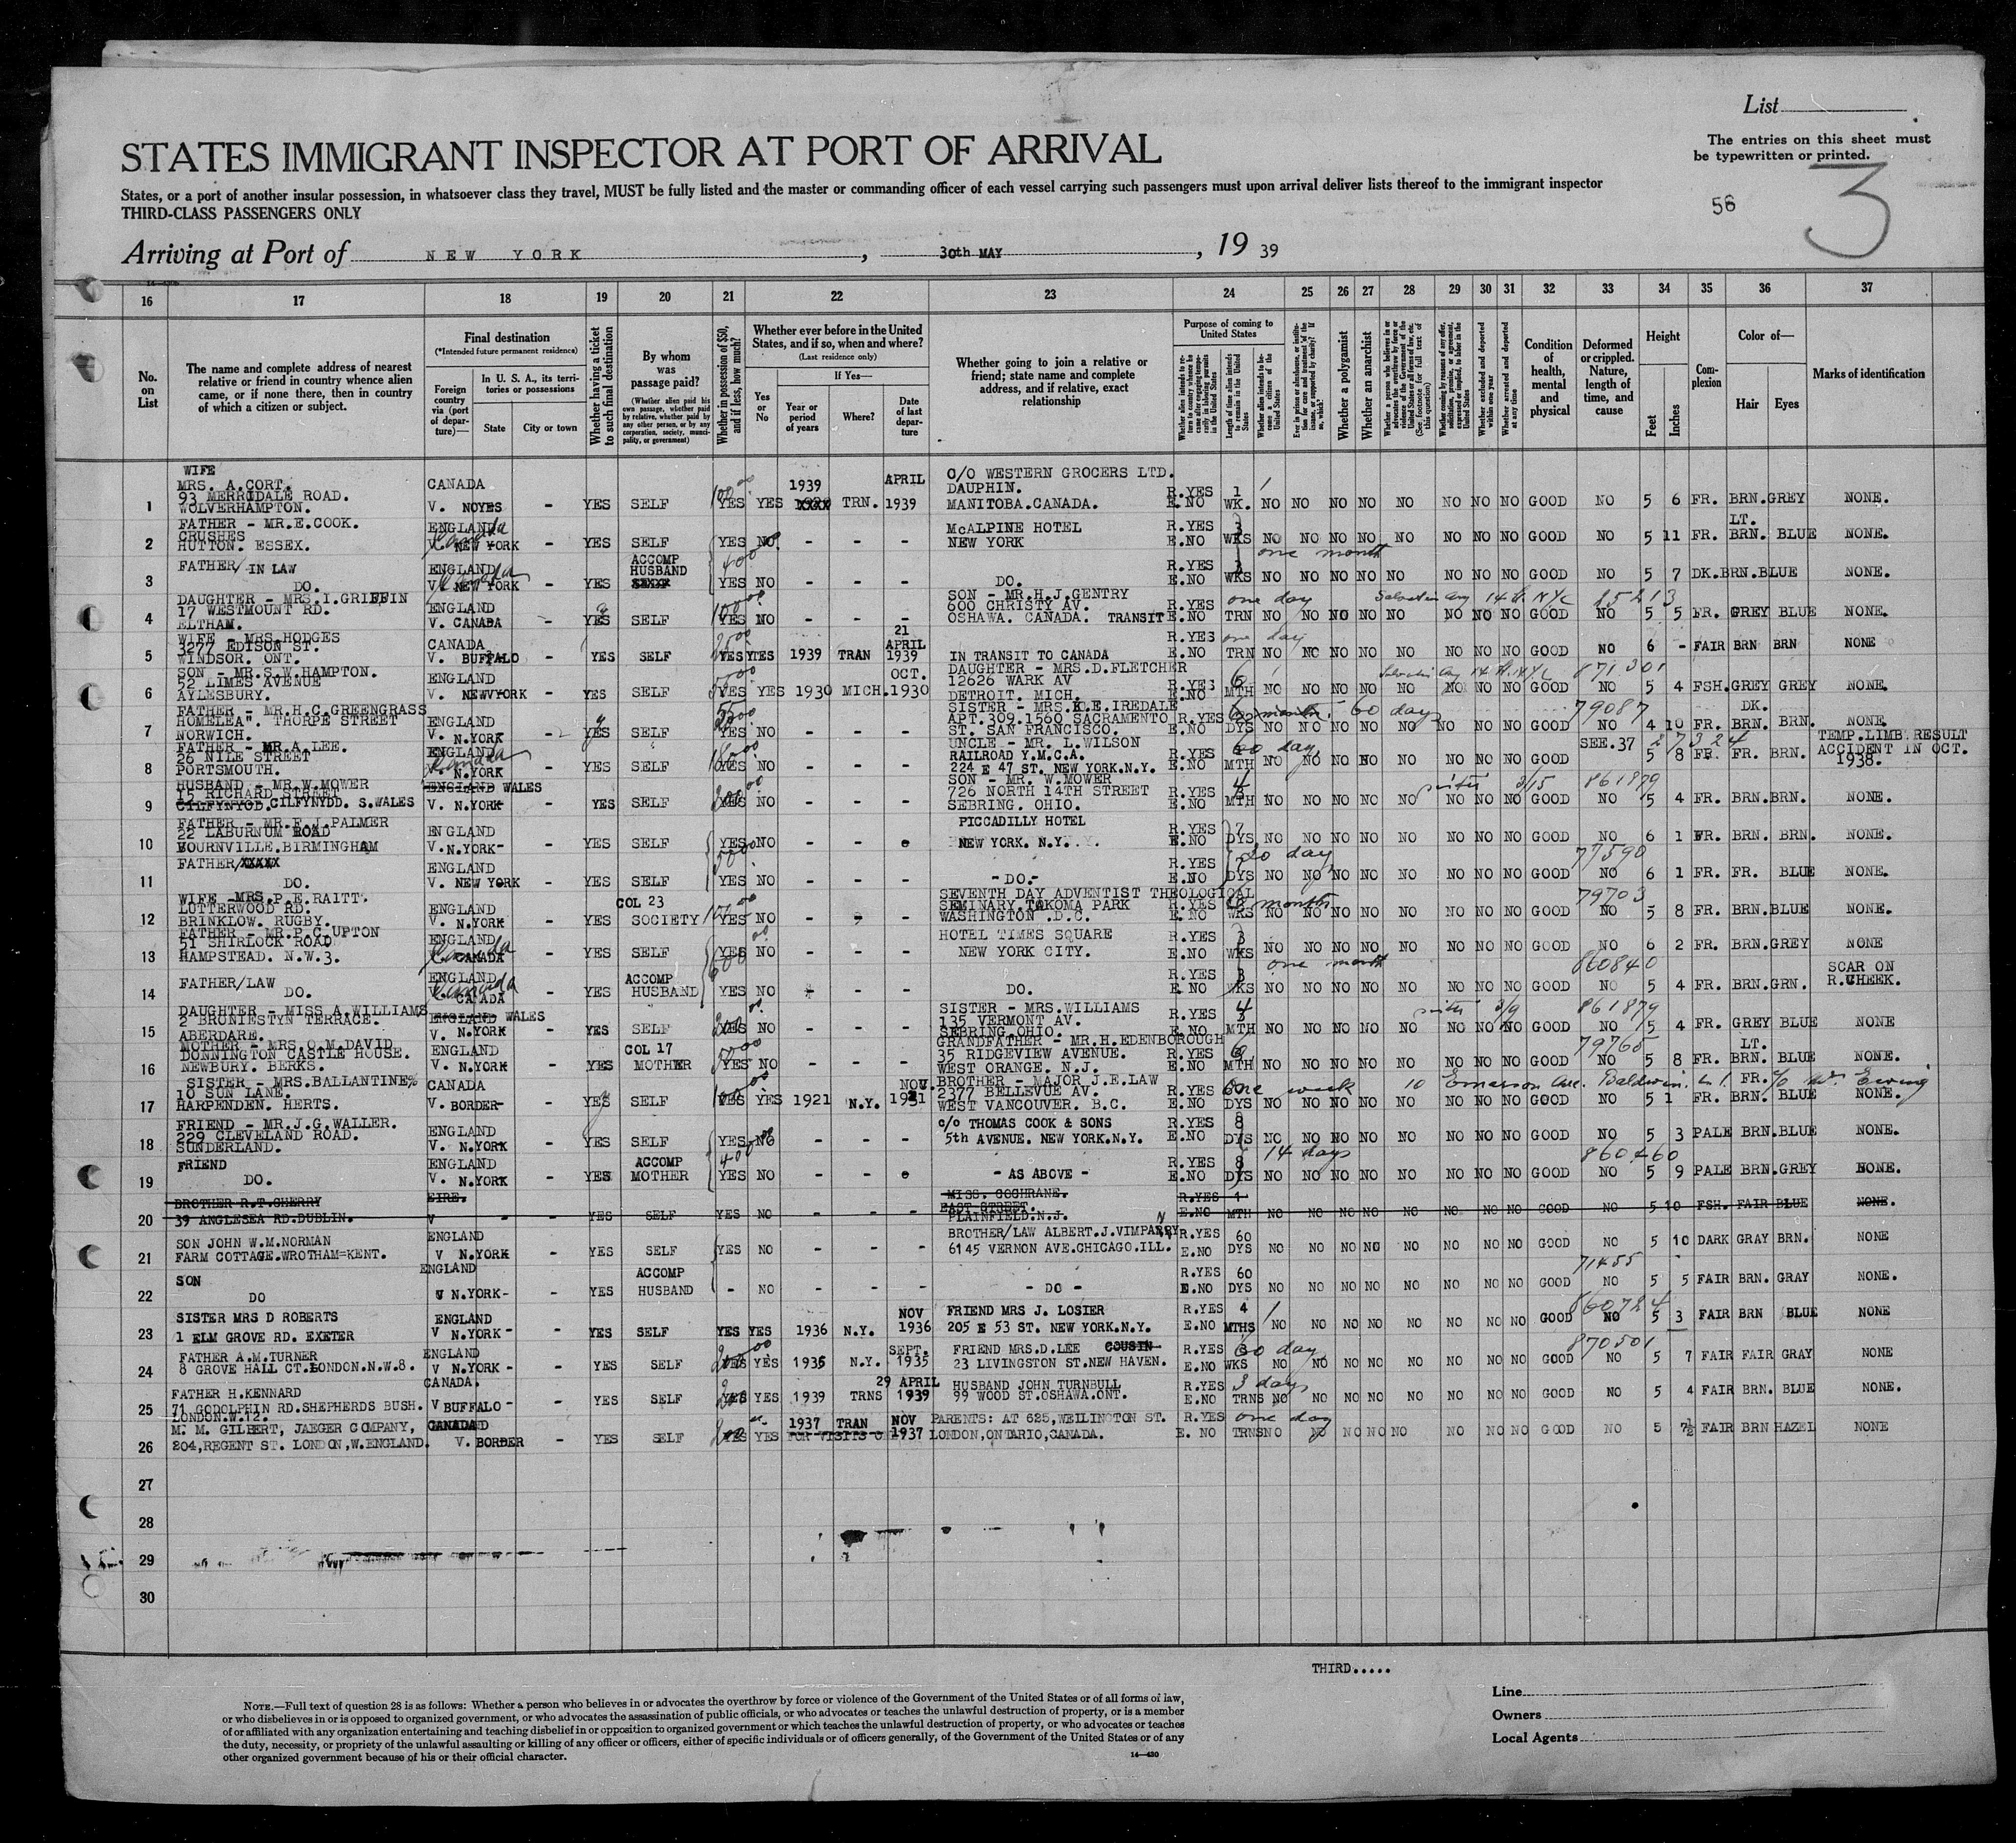 List
The entries on this sheet must
be typewritten or printed.
STATES IMMIGRANT INSPECTOR AT PORT OF ARRIVAL
States, or a port of another insular possession, in whatsoever class they travel, MUST be fully listed and the master or commanding officer of each vessel carrying such passengers must upon arrival deliver lists thereof to the immigrant inspector
THIRD-CLASS PASSENGERS ONLY
56
3
Arriving at Port of NEW YORK, 30th MAY, 19 39
16 17 18 19 20 21 22 23 24 25 26 27 28 29 30 31 32 33 34 35 36 37
No. on List
The name and complete address of nearest relative or friend in country whence alien came, or if none there, then in country of which a citizen or subject.
Final destination
(*Intended future permanent residence)
Foreign country via (port of departure)—
In U. S. A., its territories or possessions
State
City or town
Whether having a ticket to such final destination
By whom was passage paid?
(Whether alien paid his own passage, whether paid by relative, whether paid by any other person, or by any corporation, society, municipality, or government)
Whether in possession of $50, and if less, how much?
Whether ever before in the United States, and if so, when and where?
(Last residence only)
Yes or No
If Yes—
Year or period of years
Where?
Date of last departure
Whether going to join a relative or friend; state name and complete address, and if relative, exact relationship
Purpose of coming to United States
Length of time alien intends to remain in the United States
Whether alien intends to become a citizen of the United States
Whether a polygamist
Whether an anarchist
Whether excluded and deported within one year
Whether arrested and deported at any time
Condition of health, mental and physical
Deformed or crippled. Nature, length of time, and cause
Height
Feet
Inches
Complexion
Color of—
Hair
Eyes
Marks of identification
1 WIFE MRS. A.CORT. 93 MERRIDALE ROAD. WOLVERHAMPTON. CANADA V. NOYES - YES SELF 100.00 YES YES 1939 TRN. APRIL 1939 C/O WESTERN GROCERS LTD. DAUPHIN. MANITOBA.CANADA. R.YES E.NO 1 WK. NO NO NO NO NO NO NO NO GOOD NO 5 6 FR. BRN.GREY NONE.
2 FATHER - MR.E.COOK. CRUSHES HUTTON. ESSEX. ENGLAND Canada V. NEW YORK - YES SELF YES NO. - - - McALPINE HOTEL NEW YORK R.YES E.NO 3 WKS NO NO NO NO NO NO NO NO GOOD NO 5 11 FR. LT. BRN. BLUE NONE.
3 FATHER/IN LAW DO. ENGLAND Canada V NEW YORK - YES ACCOMP HUSBAND 400.00 YES NO - - - DO. R.YES E.NO 3 WKS one month NO NO NO NO NO NO NO NO GOOD NO 5 7 DK.BRN.BLUE NONE.
4 DAUGHTER - MRS.I.GRIFFIN 17 WESTMOUNT RD. ELTHAM. ENGLAND V. CANADA - YES SELF 100.00 YES NO - - - SON - MR.H.J.GENTRY 600 CHRISTY AV. OSHAWA. CANADA. TRANSIT R.YES E.NO TRN one day NO NO NO NO NO NO NO NO GOOD 85213 NO 5 5 FR. GREY BLUE NONE.
5 WIFE - MRS.HODGES 3277 EDISON ST. WINDSOR. ONT. CANADA V. BUFFALO - YES SELF 25.00 YES YES 1939 TRAN 21 APRIL 1939 IN TRANSIT TO CANADA R.YES E.NO TRN one day NO NO NO NO NO NO NO NO GOOD NO 6 - FAIR BRN BRN NONE
6 SON - MR.S.W.HAMPTON. 52 LIMES AVENUE AYLESBURY. ENGLAND V. NEWYORK - YES SELF YES YES 1930 MICH. OCT. 1930 DAUGHTER - MRS.D.FLETCHER 12626 WARK AV DETROIT. MICH. R.YES E.NO 6 MTH NO NO NO NO NO NO NO NO GOOD 871301 NO 5 4 FSH.GREY GREY NONE.
7 FATHER - MR.H.C.GREENGRASS HOMELEA". THORPE STREET NORWICH. ENGLAND V. N.YORK - YES SELF YES NO - - - SISTER - MRS.K.E.IREDALE APT.309.1560 SACRAMENTO ST. SAN FRANCISCO. R.YES E.NO DYS 60 days NO NO NO NO NO NO NO NO GOOD 79087 NO 4 10 FR. DK. BRN. BRN. NONE
8 FATHER - MR.A.LEE. 26 NILE STREET PORTSMOUTH. ENGLAND Canada V. N.YORK - YES SELF YES NO - - - UNCLE - MR. L.WILSON RAILROAD Y.M.C.A. 224 E 47 ST. NEW YORK.N.Y. R.YES E.NO MTH 60 days NO NO NO NO NO NO NO NO GOOD SEE.37 27324 5 8 FR. FR. BRN. TEMP.LIMB RESULT ACCIDENT IN OCT. 1938.
9 HUSBAND - MR.W.MOWER 15 RICHARD STREET CILFYNYDD. S.WALES ENGLAND WALES V. N.YORK - YES SELF YES NO - - - SON - MR. W.MOWER 726 NORTH 14TH STREET SEBRING. OHIO. R.YES E.NO MTH NO NO NO NO NO NO NO NO GOOD 861879 NO 5 4 FR. BRN.BRN. NONE.
10 FATHER - MR.F.J.PALMER 22 LABURNUM ROAD BOURNVILLE.BIRMINGHAM ENGLAND V.N.YORK- YES SELF YES NO - - - PICCADILLY HOTEL NEW YORK. N.Y. R.YES E.NO 7 DYS NO NO NO NO NO NO NO NO GOOD NO 6 1 FR. BRN. BRN. NONE.
11 FATHER/XXXXX DO. ENGLAND V. NEW YORK - YES SELF YES NO - - - -DO.- R.YES E.NO DYS 20 days NO NO NO NO NO NO NO NO GOOD 77590 NO 6 1 FR. FR. BLUE NONE.
12 WIFE -MRS.P.E.RAITT. LUTTERWOOD RD. BRINKLOW. RUGBY. ENGLAND V. N.YORK - YES COL 23 SOCIETY YES NO - - - SEVENTH DAY ADVENTIST THEOLOGICAL SEMINARY.TAKOMA PARK WASHINGTON .D.C. R.YES E.NO WKS months NO NO NO NO NO NO NO NO GOOD 79703 NO 5 8 FR. BRN.BLUE NONE.
13 FATHER - MR.P.C.UPTON 51 SHIRLOCK ROAD HAMPSTEAD. N.W.3. ENGLAND Canada CANADA - YES SELF 600.00 YES NO - - - HOTEL TIMES SQUARE NEW YORK CITY. R.YES E.NO 3 WKS NO NO NO NO NO NO NO NO GOOD NO 6 2 FR. BRN.GREY NONE
14 FATHER/LAW DO. ENGLAND Canada V. CANADA - YES ACCOMP HUSBAND YES NO - - - DO. R.YES E.NO 3 WKS one month NO NO NO NO NO NO NO NO GOOD 860840 NO 5 4 FR. BRN.GRN. SCAR ON R.CHEEK.
15 DAUGHTER - MISS A.WILLIAMS 2 BRONIESTYN TERRACE. ABERDARE. ENGLAND WALES V. N.YORK - YES SELF YES NO - - - SISTER - MRS.WILLIAMS 135 VERMONT AV. SEBRING.OHIO. R.YES E.NO MTH NO NO NO NO NO NO NO NO GOOD 861879 NO 5 4 FR. GREY BLUE NONE
16 MOTHER - MRS.O.M.DAVID DONNINGTON CASTLE HOUSE. NEWBURY. BERKS. ENGLAND V. N.YORK - YES COL 17 MOTHER YES NO - - - GRANDFATHER - MR.H.EDENBOROUGH 35 RIDGEVIEW AVENUE. WEST ORANGE. N.J. R.YES E.NO MTH NO NO NO NO NO NO NO NO GOOD 79765 NO 5 8 FR. LT. BRN. BLUE NONE.
17 SISTER - MRS.BALLANTINE% 10 SUN LANE. HARPENDEN. HERTS. CANADA V. BORDER- YES SELF 100.00 YES YES 1921 N.Y. NOV. 1931 BROTHER - MAJOR J.E.LAW 2377 BELLEVUE AV. WEST VANCOUVER. B.C. R.YES E.NO DYS one week 10 Emerson Ave. Baldwin. L.I. NO NO NO NO NO NO NO NO GOOD NO 5 1 FR. FR. BRN. BLUE NONE.
18 FRIEND - MR.J.G.WALLER. 229 CLEVELAND ROAD. SUNDERLAND. ENGLAND V. N.YORK - YES SELF YES NO - - - c/o THOMAS COOK & SONS 5th AVENUE. NEW YORK.N.Y. R.YES E.NO 8 DYS NO NO NO NO NO NO NO NO GOOD NO 5 3 PALE BRN.BLUE NONE.
19 FRIEND DO. ENGLAND V. N.YORK - YES ACCOMP MOTHER 400.00 YES NO - - - - AS ABOVE - R.YES E.NO 8 DYS 14 days NO NO NO NO NO NO NO NO GOOD 860460 NO 5 9 PALE BRN.GREY NONE.
20 BROTHER R.T.CHERRY 39 ANGLESEA RD.DUBLIN. EIRE. V - - YES SELF YES NO - - - MISS. COCHRANE. EAST STREET. PLAINFIELD.N.J. R.YES E.NO 1 MTH NO NO NO NO NO NO NO NO GOOD NO 5 10 FSH. FAIR BLUE NONE.
21 SON JOHN W.M.NORMAN FARM COTTAGE.WROTHAM=KENT. ENGLAND V N.YORK - YES SELF YES NO - - - BROTHER/LAW ALBERT.J.VIMPANY 6145 VERNON AVE.CHICAGO.ILL. R.YES E.NO 60 DYS NO NO NO NO NO NO NO NO GOOD NO 5 10 DARK GRAY BRN. NONE
22 SON DO ENGLAND V N.YORK- YES ACCOMP HUSBAND - NO - - - - DO - R.YES E.NO 60 DYS NO NO NO NO NO NO NO NO GOOD 71455 NO 5 5 FAIR BRN. GRAY NONE.
23 SISTER MRS D ROBERTS 1 ELM GROVE RD. EXETER ENGLAND V N.YORK - YES SELF YES YES 1936 N.Y. NOV 1936 FRIEND MRS J. LOSIER 205 E 53 ST. NEW YORK.N.Y. R.YES E.NO 4 MTHS NO NO NO NO NO NO NO NO GOOD 860724 NO 5 3 FAIR BRN BLUE NONE
24 FATHER A.M.TURNER 8 GROVE HALL CT.LONDON.N.W.8. ENGLAND V N.YORK - YES SELF 200.00 YES YES 1935 N.Y. SEPT. 1935 FRIEND MRS.D.LEE COUSIN 23 LIVINGSTON ST.NEW HAVEN. R.YES E.NO WKS 60 days NO NO NO NO NO NO NO NO GOOD 870501 NO 5 7 FAIR FAIR GRAY NONE
25 FATHER H.KENNARD 71 GODOLPHIN RD.SHEPHERDS BUSH. LONDON.W.12. CANADA. V BUFFALO - YES SELF YES YES 1939 TRNS 29 APRIL 1939 HUSBAND JOHN TURNBULL 99 WOOD ST.OSHAWA.ONT. R.YES E.NO TRNS 3 days NO NO NO NO NO NO NO NO GOOD NO 5 4 FAIR BRN. BLUE NONE.
26 M. M. GILBERT, JAEGER COMPANY, 204,REGENT ST. LONDON,W.ENGLAND. CANADA V. BORDER - YES SELF 200 YES YES 1937 TRAN FOR VISITS NOV 1937 PARENTS: AT 625,WELLINGTON ST. LONDON,ONTARIO,CANADA. R.YES E. NO TRNS one day NO NO NO NO NO NO NO NO GOOD NO 5 7½ FAIR BRN HAZEL NONE
27
28
29
30
THIRD.....
NOTE.—Full text of question 28 is as follows: Whether a person who believes in or advocates the overthrow by force or violence of the Government of the United States or of all forms of law,
or who disbelieves in or is opposed to organized government, or who advocates the assassination of public officials, or who advocates or teaches the unlawful destruction of property, or is a member
of or affiliated with any organization entertaining and teaching disbelief in or opposition to organized government or which teaches the unlawful destruction of property, or who advocates or teaches
the duty, necessity, or propriety of the unlawful assaulting or killing of any officer or officers, either of specific individuals or of officers generally, of the Government of the United States or of any
other organized government because of his or their official character.
14—430
Line
Owners
Local Agents